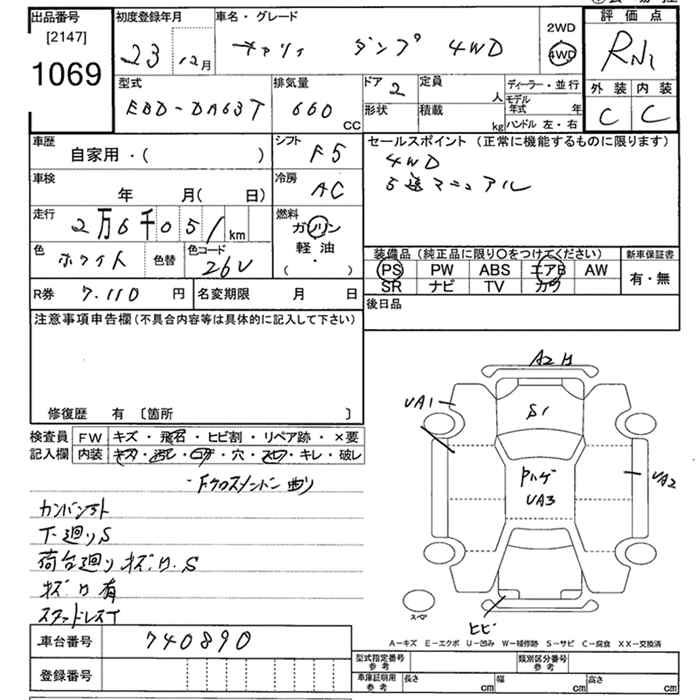 出品番号 初度登録年月 車名・グレード 評価点
[2147] 2WD
1069 23 12月 キャリイ ダンプ 4WD 4WD
外装 内装
C C
型式 排気量 ドア 2 定員 人 ディーラー・並行
EBD-DA63T 660 CC 形状 積載 kg モデル年式 年
ハンドル 左・右
車歴 シフト セールスポイント (正常に機能するものに限ります)
自家用・( ) F5 4WD
車検 冷房 5速マニュアル
年 月( 日) AC
走行 燃料
2万6千051km ガソリン
色 色替 色コード 軽油
ホワイト 26U (・)
装備品 (純正品に限り〇をつけてください) 新車保証書
PS PW ABS エアB AW 有・無
SR ナビ TV カワ
R券 7.110 円 名変期限 月 日 後日品
注意事項申告欄 (不具合内容等は具体的に記入して下さい)
修復歴 有 [箇所 ]
検査員 FW キズ・飛石・ヒビ割・リペア跡・×要
記入欄 内装 キズ・汚れ・コゲ・穴・スレ・キレ・破レ
下廻りS
荷台廻り キズ凹.S
キズ凹有
スタッドレスT
A2
UA1
S1
UA2
Pハゲ
UA3
ヒビ
スペア
A-キズ E-エクボ U-凹み W-補修跡 S-サビ C-腐食 XX-交換済
車台番号 740890
登録番号
型式指定番号 参考 類別区分番号 参考
車庫証明用 参考 長さ cm 幅 cm 高さ cm